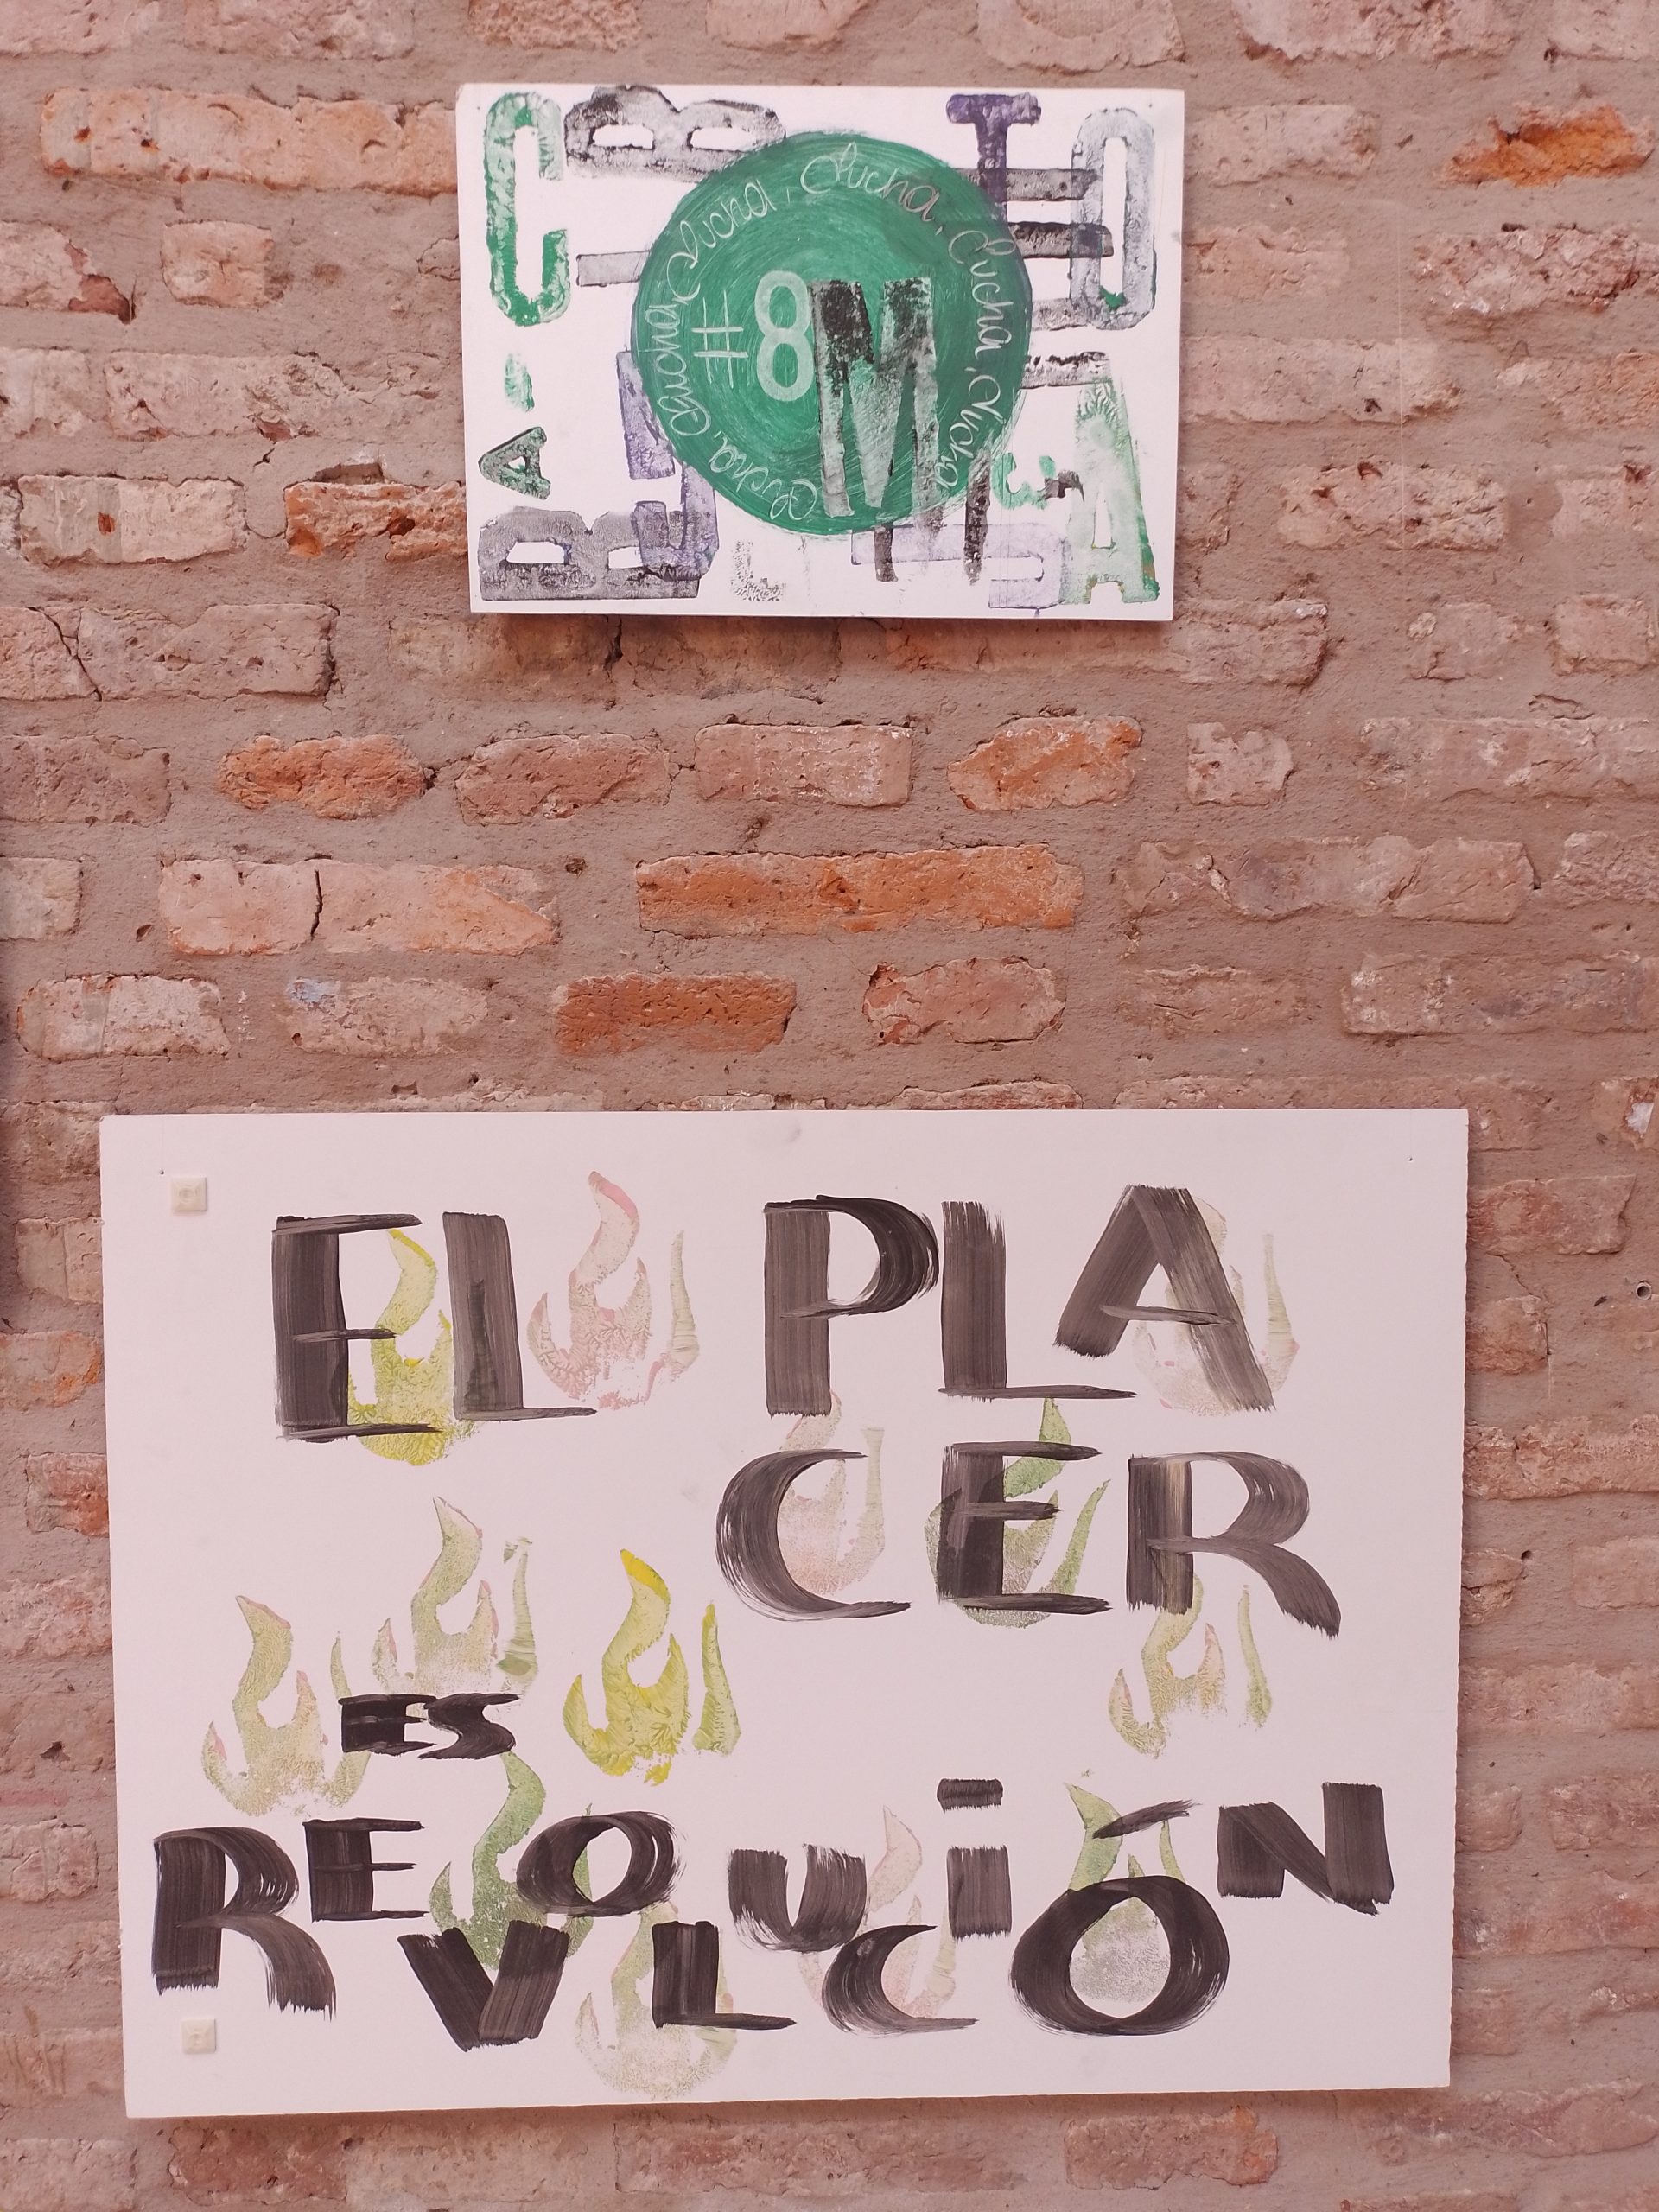 Lucha, Lucha, Lucha, Lucha, Lucha, Lucha, Lucha
#8M
EL PLA
CER
ES
REVOLUCIÓN